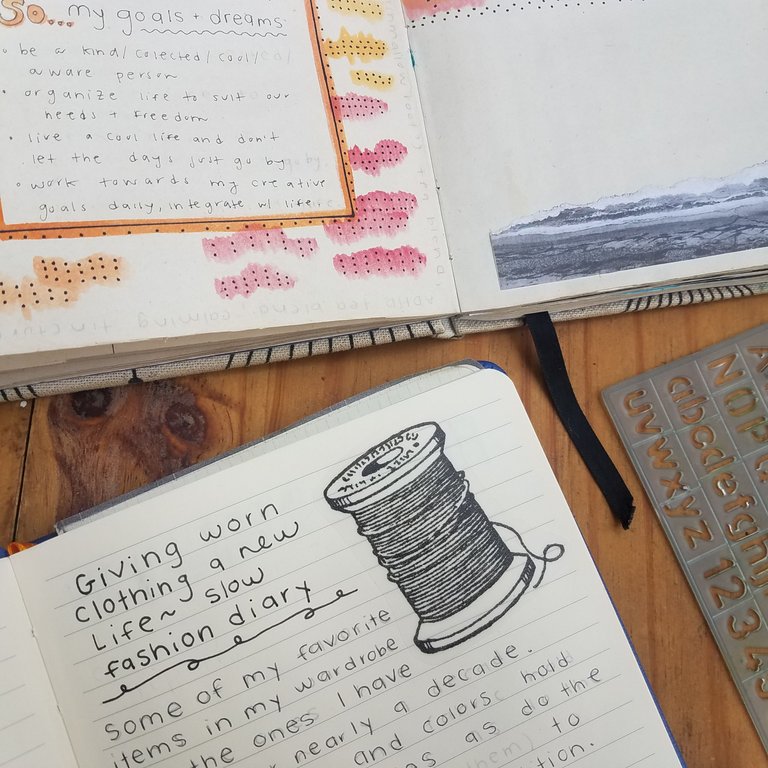 So... my goals + dreams
• be a kind/colected/cool/
aware person
• organize life to suit our
needs + freedom
• live a cool life and don't
let the days just go by
• work towards my creative
goals daily, integrate w/ life
Giving worn
clothing a new
Life~ slow
fashion diary
some of my favorite
items in my wardrobe
the ones I have
nearly a decade.
and colors hold
as do the
them) to
A
NOP
abcdefghij
uvwxyz
12345